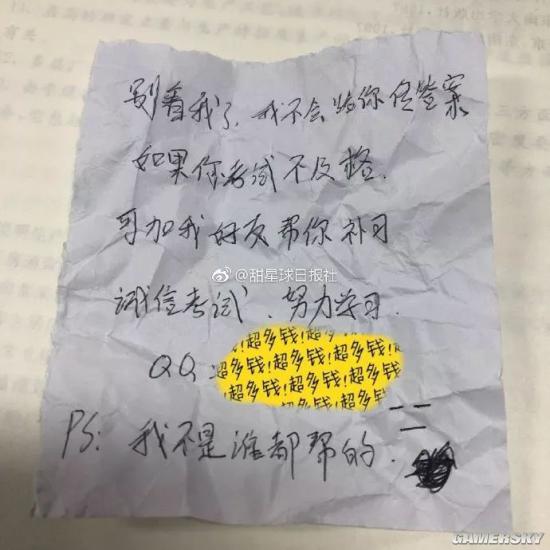 别看我了，我不会给你传答案
如果你考试不及格．
可加我好友帮你补习
@甜星球日报社
诚信考试、努力学习．
QQ：
超多钱！超多钱！超多钱！
超多钱！超多钱！超多钱！
超多钱！超多钱！超多钱！
超多钱！超多钱！超多钱！
PS：我不是谁都帮的．
GAMERSKY